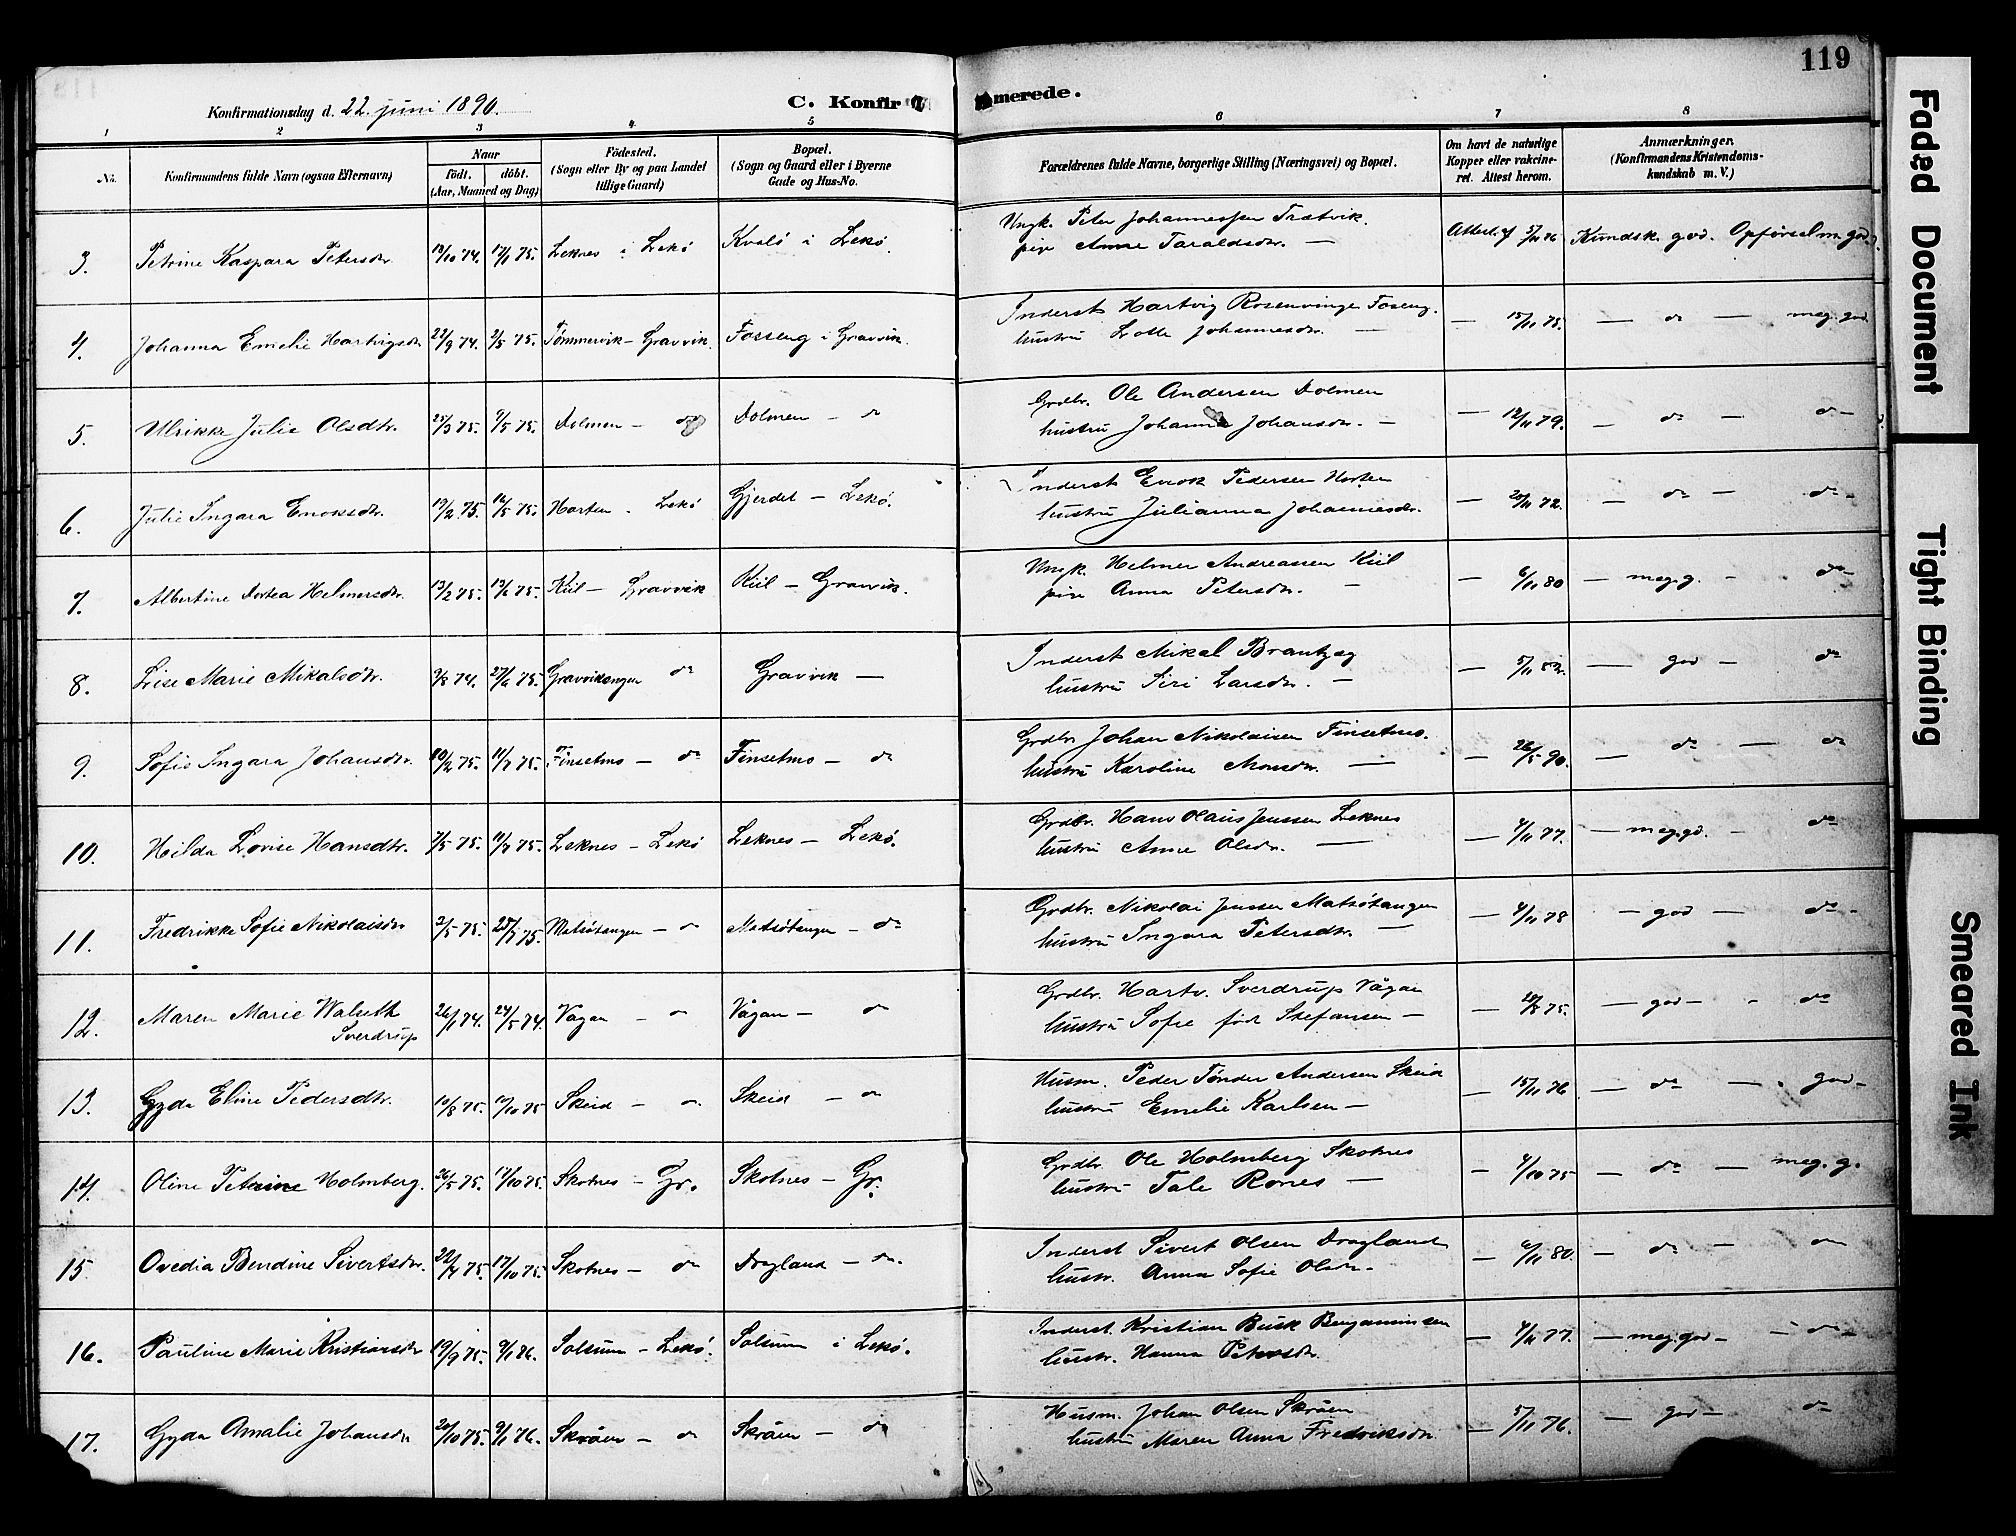 119
Konfirmationsdag d. 22. juni 1890.
C. Konfirmerede.
1 2 3 4 5 6 7 8
No.
Konfirmandens fulde Navn (ogsaa Efternavn)
Naar
födt. döbt.
(Aar, Maaned og Dag)
Födested.
(Sogn eller By og paa Landet
tillige Gaard)
Bopæl.
(Sogn og Gaard eller i Byerne
Gade og Hus-No.
Forældrenes fulde Navne, borgerlige Stilling (Næringsvei) og Bopæl.
Om havt de naturlige
Kopper eller vakcine-
ret. Attest herom.
Anmærkninger.
(Konfirmandens Kristendoms-
kundskab m. V.)
3. Petrine Kaspara Petersdr. Leknes i Lekö Kvalö i Lekö
Ungk. Peter Johannessen Trætvik.
pige Anne Taraldsdr. — Kundsk. god. Opförsel m. god.
4. Johanna Emelie Hartvigsdr. 22/9 74. 2/5 75. Tömmervik – Gravvik. Fosseng i Gravvik.
Inderst Hartvig Rosenvinge Foseng.
hustru Lotte Johannesdr. — — 15/11 75. — do — meg. god
5. Ulrikke Julie Olsdtr. 25/3 75. 9/5 75. Dolmen – do Dolmen – do
Grdbr. Ole Andersen Dolmen
hustru Johanna Johansdr. — — 12/11 79. — do — do —
6. Julie Ingara Enoksdr. 19/2 75. 16/5 75. Horten – Lekö Gjerdet – Lekö.
Inderst Enok Pedersen Horten
hustru Julianna Johannesdr. — 20/11 72. — do — do —
7. Albertine Dortea Helmersdr. 13/2 75. 13/6 75. Kiil – Gravvik Kiil – Gravvik.
Ungk. Helmer Andreassen Kiil
pige Anna Petersdr. — — 6/11 80 — meg. g. — do —
8. Lise Marie Mikalsdr. 9/8 74. 27/6 75. Gravviksengen do Gravvik —
Inderst Mikal Brantzæg
hustru Siri Larsdr. — — 5/11 82. — god — do
9. Sofie Ingara Johansdr. 11/7 75. Finsetmo – do Finsetmo – do
Grdbr. Johan Nikolaisen Finsetmo.
hustru Karoline Monsdr. — — 26/5 90. — do — do
10. Hilda Lovise Hansdtr. 7/5 75. 11/7 75. Leknes – Lekö Leknes – Lekö.
Grdbr. Hans Olaus Jenssen Leknes
hustru Anne Olsdr. — — 4/11 77. — meg. gd. — do
11. Fredrikke Sofie Nikolaisdr 2/5 75. 25/7 75. Matsötangen – do Matsötangen – do
Grdbr. Nikolai Jenssen Matsötangen
hustru Ingara Petersdtr. — — 4/11 78 — god — do —
12. Maren Marie Walseth 26/1 74. 24/5 74. Vågan – do Vågan – do
Sverdrup
Grdbr. Hartv. Sverdrup Vågan
hustru Sofie född Stefansen — — god — do
13. Gyda Eline Pedersdtr. 19/8 75. 17/10 75 Skeid – do Skeid – do
Husm. Peder Tönder Andersen Skeid
hustru Emelie Karlsen — — 15/11 76 — do — god —
14. Oline Peterine Holmberg. 26/5 75. 17/10 75. Skotnes – Gr. Skotnes – Gr.
Grdbr. Ole Holmberg Skotnes
hustru Tale Rones — — 4/10 75 — do — meg. g.
15. Ovedia Bendine Sivertsdr. 22/7 75. 17/10 75. Skotnes – do Dragland – do.
Inderst Sivert Olsen Dragland
hustr. Anna Sofie Olsdr. — 6/11 80. — do — do
16. Pauline Marie Kristiansdr 19/9 75. 9/1 76. Solsum – Lekö. Solsum i Lekö.
Inderst. Kristian Busk Benjaminsen
hustr. Hanna Petersdr. — 4/11 77. — meg. god — do —
17. Gyda Amalie Johansdr 20/10 75. 9/1 76. Skråen – do Skråen – do
Husm. Johan Olsen Skråen
hustru Maren Anna Fredriksdr. — 5/11 76. — god — do
Faded Document
Tight Binding
Smeared Ink